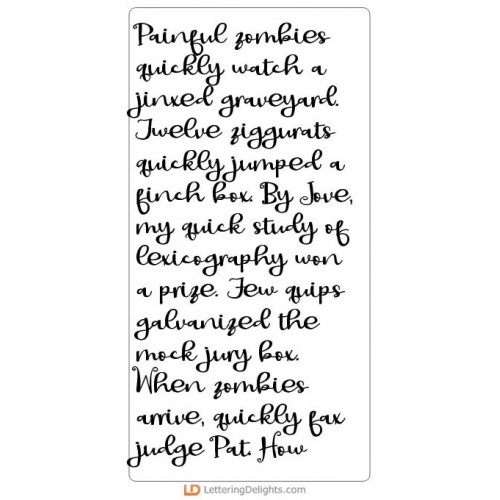 Painful zombies
quickly watch a
jinxed graveyard.
Twelve ziggurats
quickly jumped a
finch box. By Jove,
my quick study of
lexicography won
a prize. Few quips
galvanized the
mock jury box.
When zombies
arrive, quickly fax
judge Pat. How
LD LetteringDelights.com